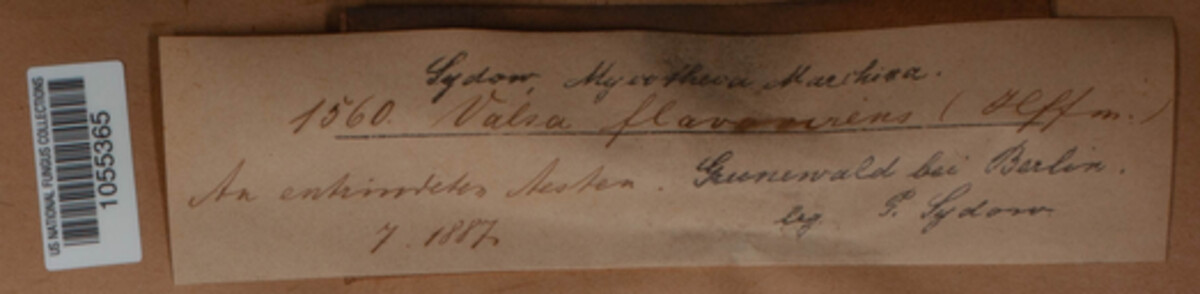 US NATIONAL FUNGUS COLLECTIONS
1055365
Sydow, Mycotheca Marchica.
1560. Valsa flavovirens (Hffm.)
An entrindeten Aesten. Grunewald bei Berlin.
7. 1887. leg. P. Sydow